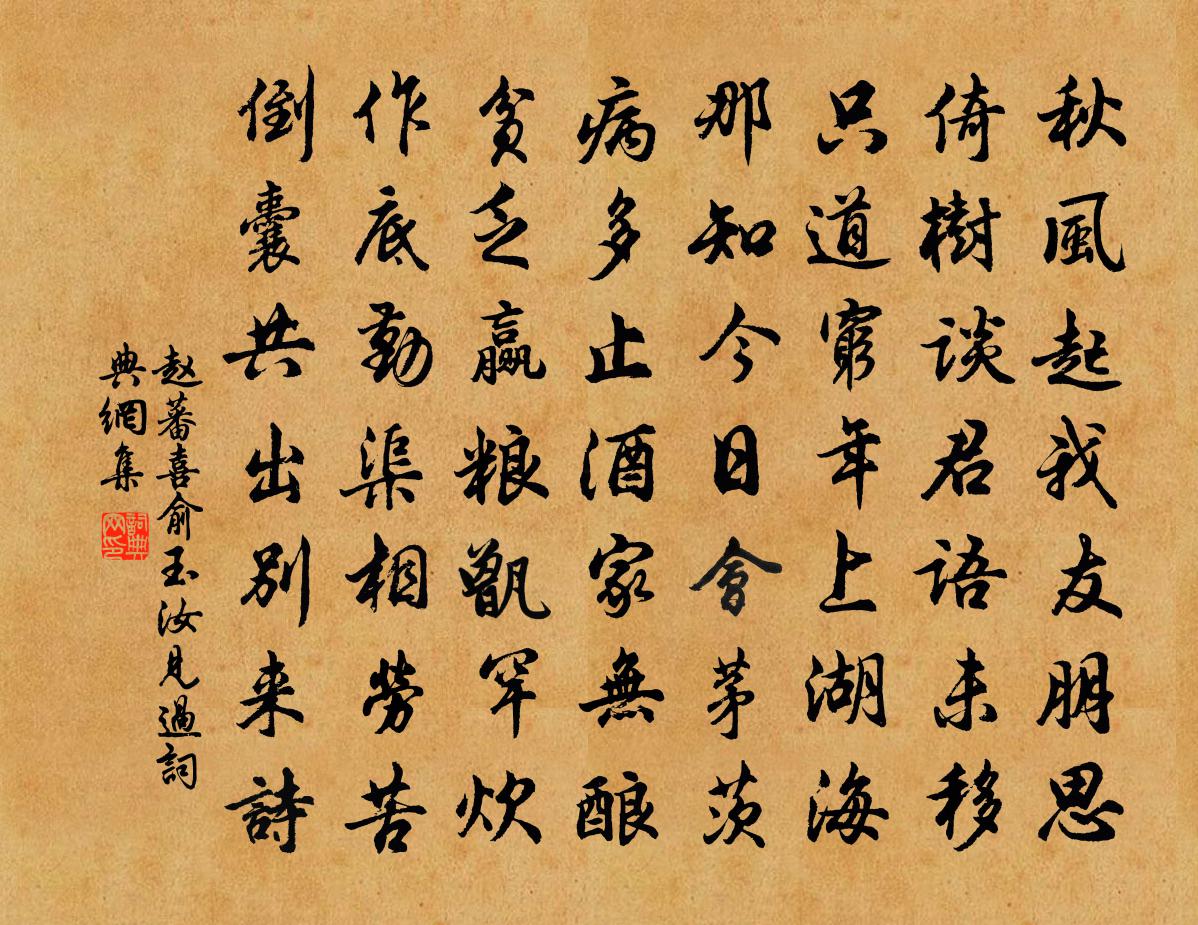 秋風起我友朋思
倚樹談君語未移
只道窮年上湖海
那知今日會茅茨
病多止酒家無酿
貧乏赢粮甑罕炊
作底勤渠相勞苦
倒囊共出别来詩
赵蕃喜俞玉汝見過詞
典網集
詞典
网印